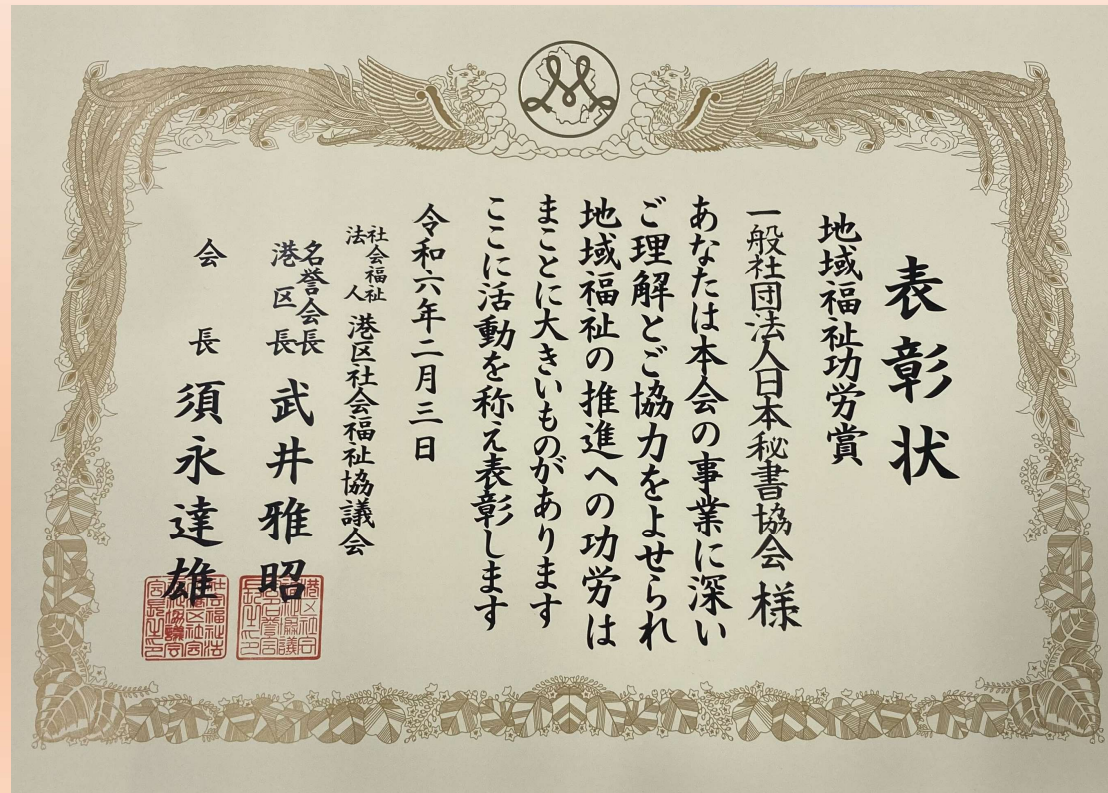 表彰状
地域福祉功労賞
一般社団法人日本秘書協会 様
あなたは本会の事業に深い
ご理解とご協力をよせられ
地域福祉の推進への功労は
まことに大きいものがあります
ここに活動を称え表彰します
令和六年二月三日
社会福祉法人 港区社会福祉協議会
名誉会長
港区長 武井雅昭
会長 須永達雄